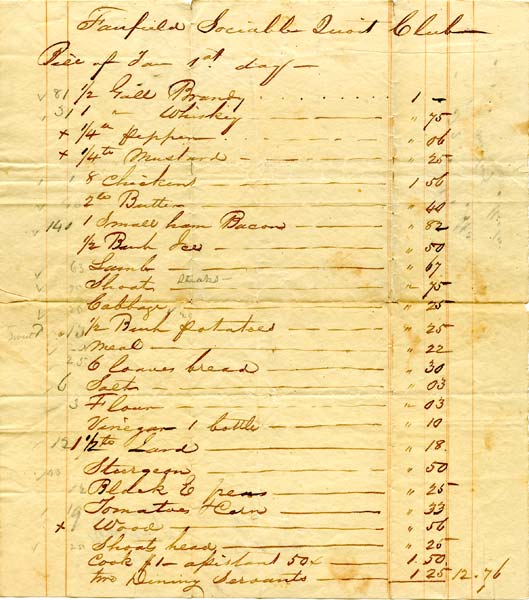 Fairfield Sociable Quoit Club
Bill of Fare 1st day
81 1/2 Gill Brandy 1 –
31 1 " Whiskey " 75
x 1/4 lb Pepper " 06
x 1/4 lb Mustard " 25
8 Chickens 1 50
2 lb Butter " 40
141 1 Small ham Bacon " 82
1/2 Bush Ice " 50
63 Lamb " 67
Shoat Steaks " 75
Cabbage " 25
1/2 Bush potatoes " 25
Meal " 22
25 6 loaves bread " 30
6 Salt " 03
3 Flour " 03
Vinegar 1 bottle " 10
12 1 1/2 lb Lard " 18
Sturgeon " 50
12 Black E peas " 25
19 Tomatoes & Corn " 33
x Wood " 56
Shoats head " 25
Cook $1 – assistant 50x 1.50
two Dining Servants 1 25 12.76